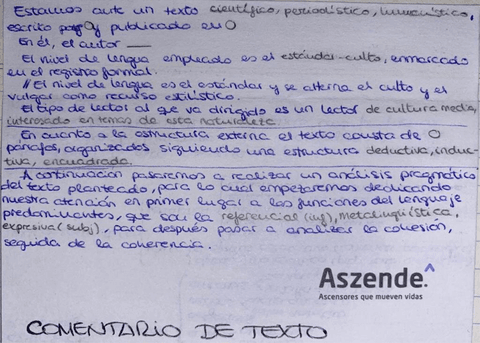 Estamos ante un texto científico, periodístico, humanístico,
escrito por O y publicado en O
En él, el autor ___
El nivel de lengua empleado es el estándar-culto, enmarcado
en el registro formal.
// El nivel de lengua es el estándar y se alterna el culto y el
vulgar como recurso estilístico.
El tipo de lector al que va dirigido es un lector de cultura media,
interesado en temas de esta naturaleza.
En cuanto a la estructura externa el texto consta de O
párrafos, organizados siguiendo una estructura deductiva, induc-
tiva, encuadrada.
A continuación pasaremos a realizar un análisis pragmático
del texto planteado, para lo cual empezaremos dedicando
nuestra atención en primer lugar a las funciones del lenguaje
predominantes, que son la referencial (inf), metalingüística,
expresiva (subj), para después pasar a analizar la cohesión,
seguida de la coherencia.
Aszende
Ascensores que mueven vidas
COMENTARIO DE TEXTO